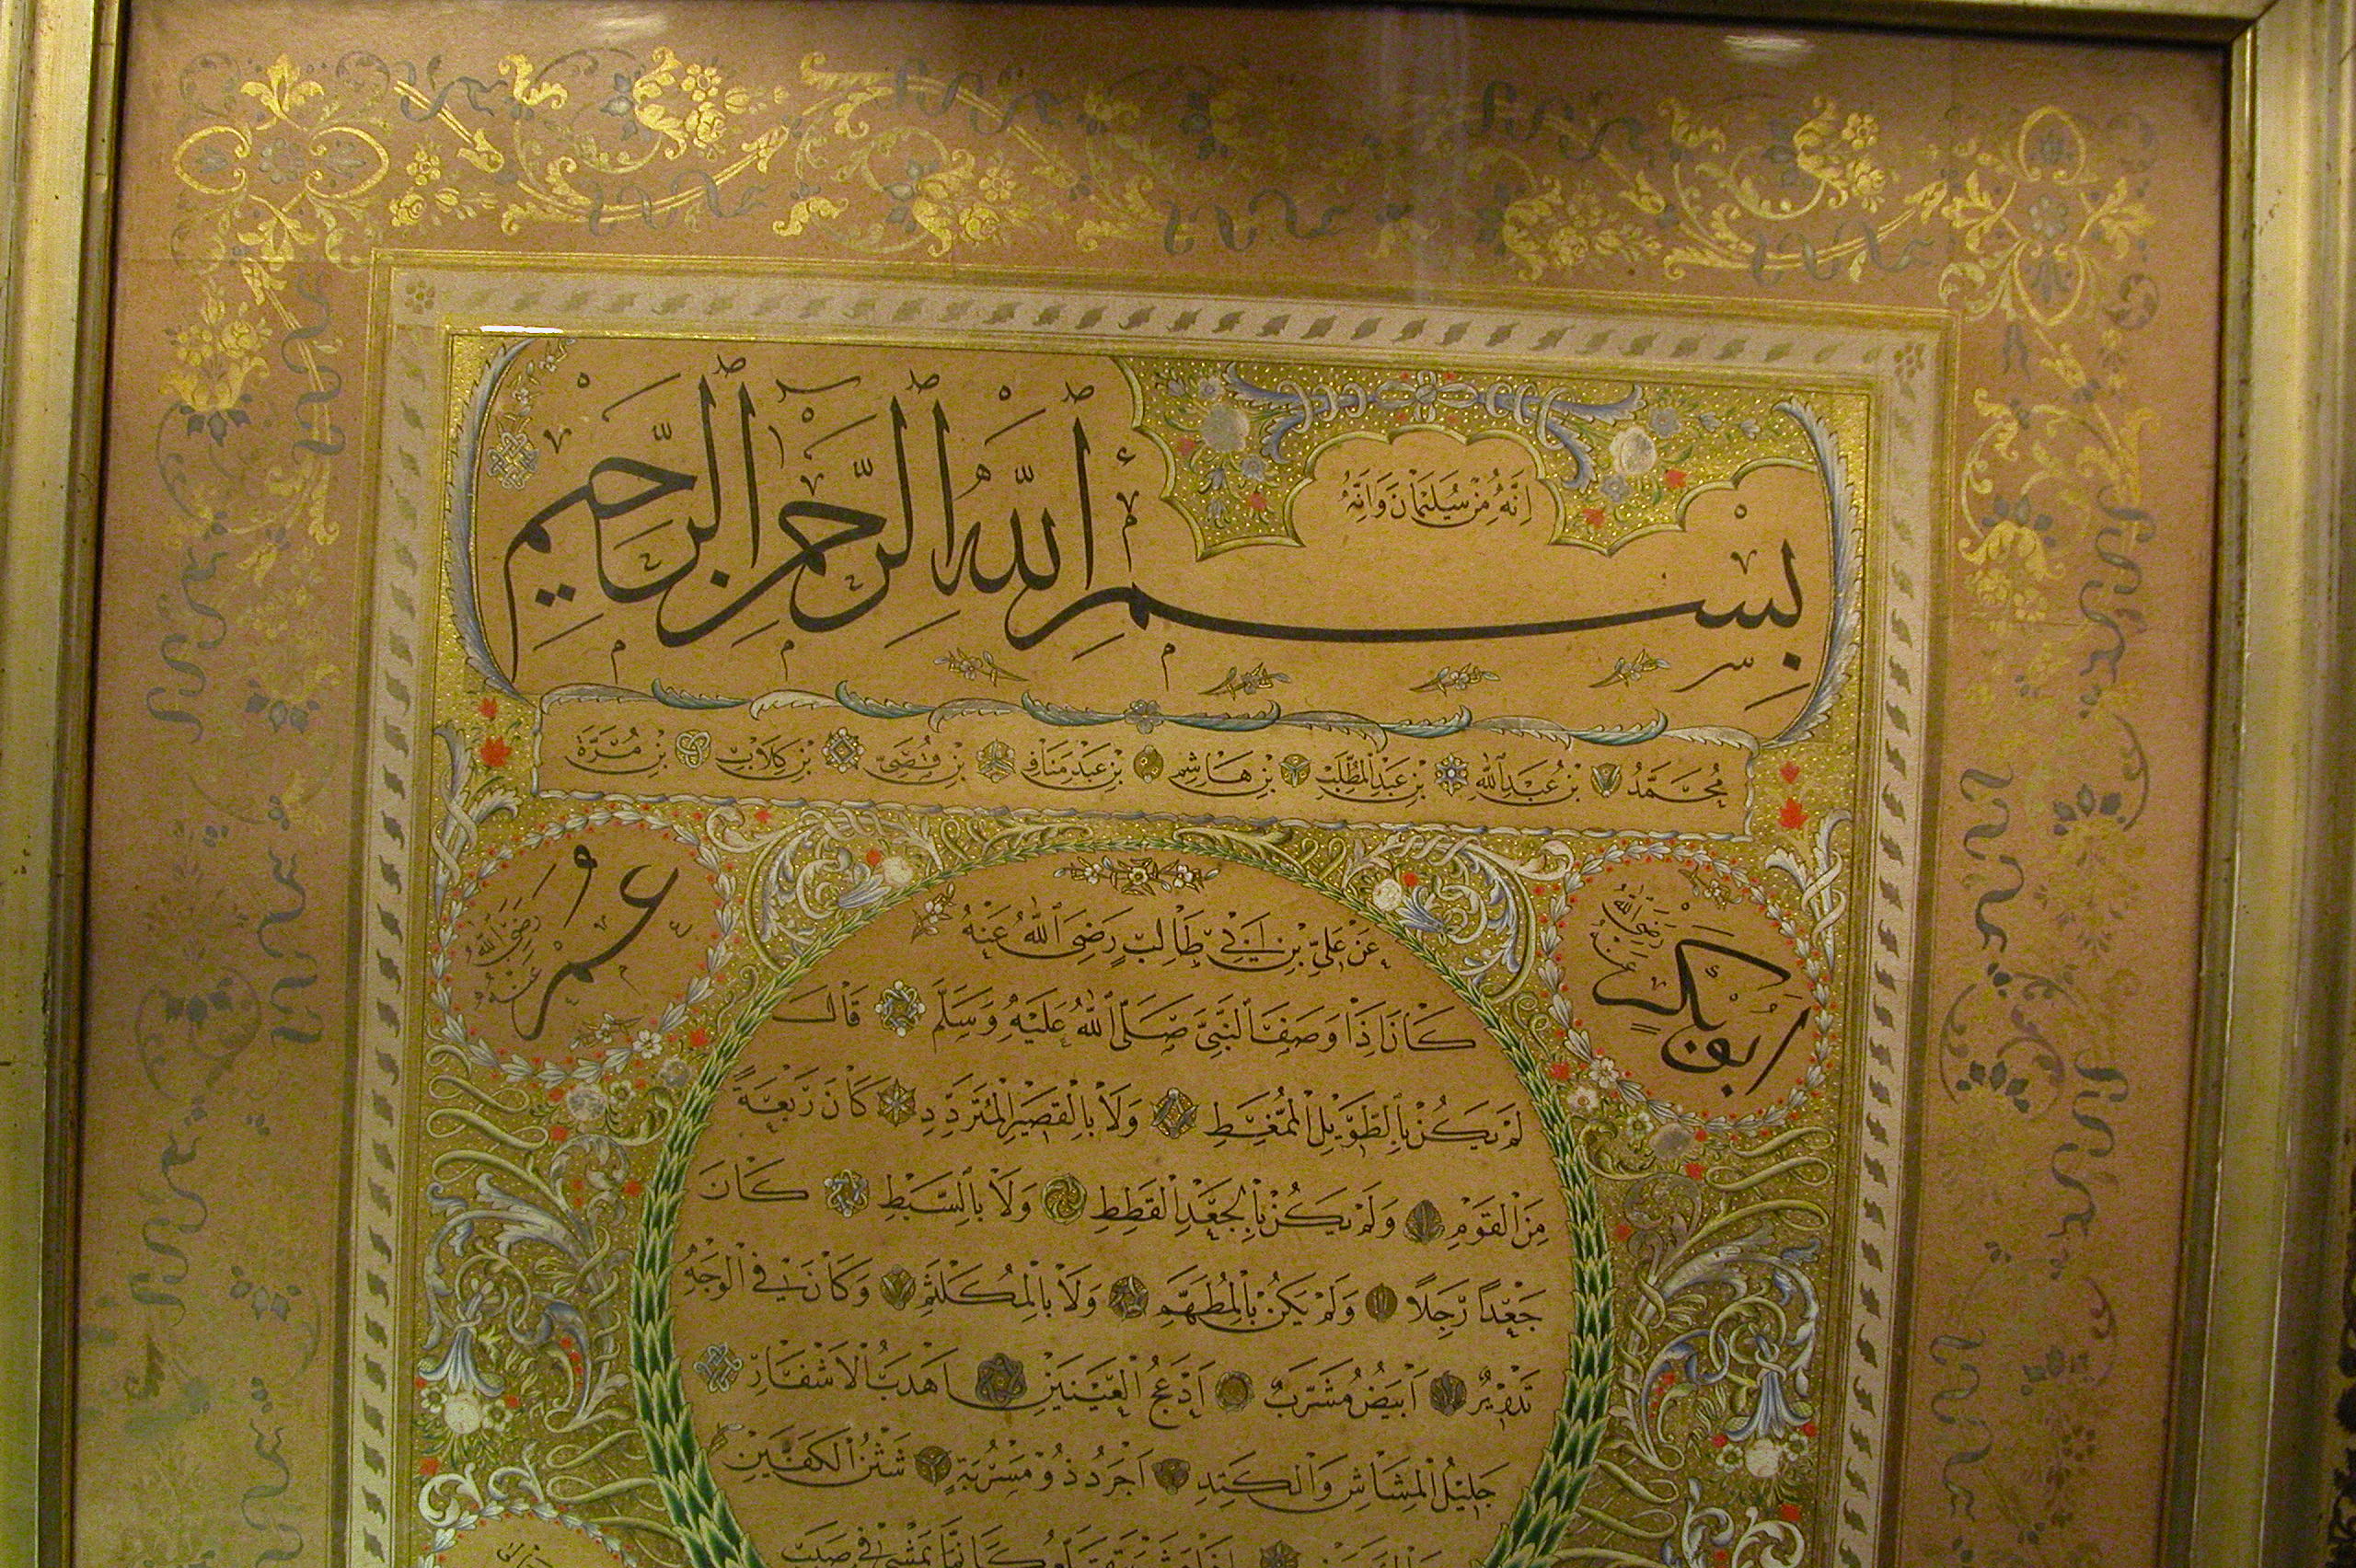 اِنَّهُ مِنْ سُلَيْمَانَ وَاِنَّهُ
بِسْمِ ٱللّٰهِ ٱلرَّحْمٰنِ ٱلرَّحِيمِ
مُحَمَّدُ بْنُ عَبْدِ ٱللّٰهِ بْنِ عَبْدِ ٱلْمُطَّلِبْ بْنِ هَاشِمِ بْنِ عَبْدِ مَنَافِ بْنِ قُصَىِّ بْنِ كِلَابْ بْنِ مُرَّةَ
اَبُو بَكْرٍ رَضِىَ ٱللّٰهُ عَنْهُ
عُمَرْ رَضِىَ ٱللّٰهُ عَنْهُ
عَنْ عَلِىِّ بْنِ اَبِى طَالِبٍ رَضِىَ ٱللّٰهُ عَنْهُ
كَانَ اِذَا وَصَفَ ٱلنَّبِىَّ صَلَّى ٱللّٰهُ عَلَيْهِ وَسَلَّمَ قَالَ
لَمْ يَكُنْ بِالطَّوِيلِ الْمُمَّغِطِ وَلَا بِالْقَصِيرِ الْمُتَرَدِّدِ كَانَ رَبْعَةً
مِنَ الْقَوْمِ وَلَمْ يَكُنْ بِالْجَعْدِ الْقَطِطِ وَلَا بِالسَّبْطِ كَانَ
جَعْدًا رَجِلًا وَلَمْ يَكُنْ بِالْمُطَهَّمِ وَلَا بِالْمُكَلْثَمِ وَكَانَ فِى الْوَجْهِ
تَدْوِيرٌ اَبْيَضُ مُشَرَّبٌ اَدْعَجُ الْعَيْنَيْنِ اَهْدَبُ الْاَشْفَارِ
جَلِيلُ الْمُشَاشِ وَالْكَتِدِ اَجْرَدُ ذُو مَسْرُبَةٍ شَثْنُ الْكَفَّيْنِ